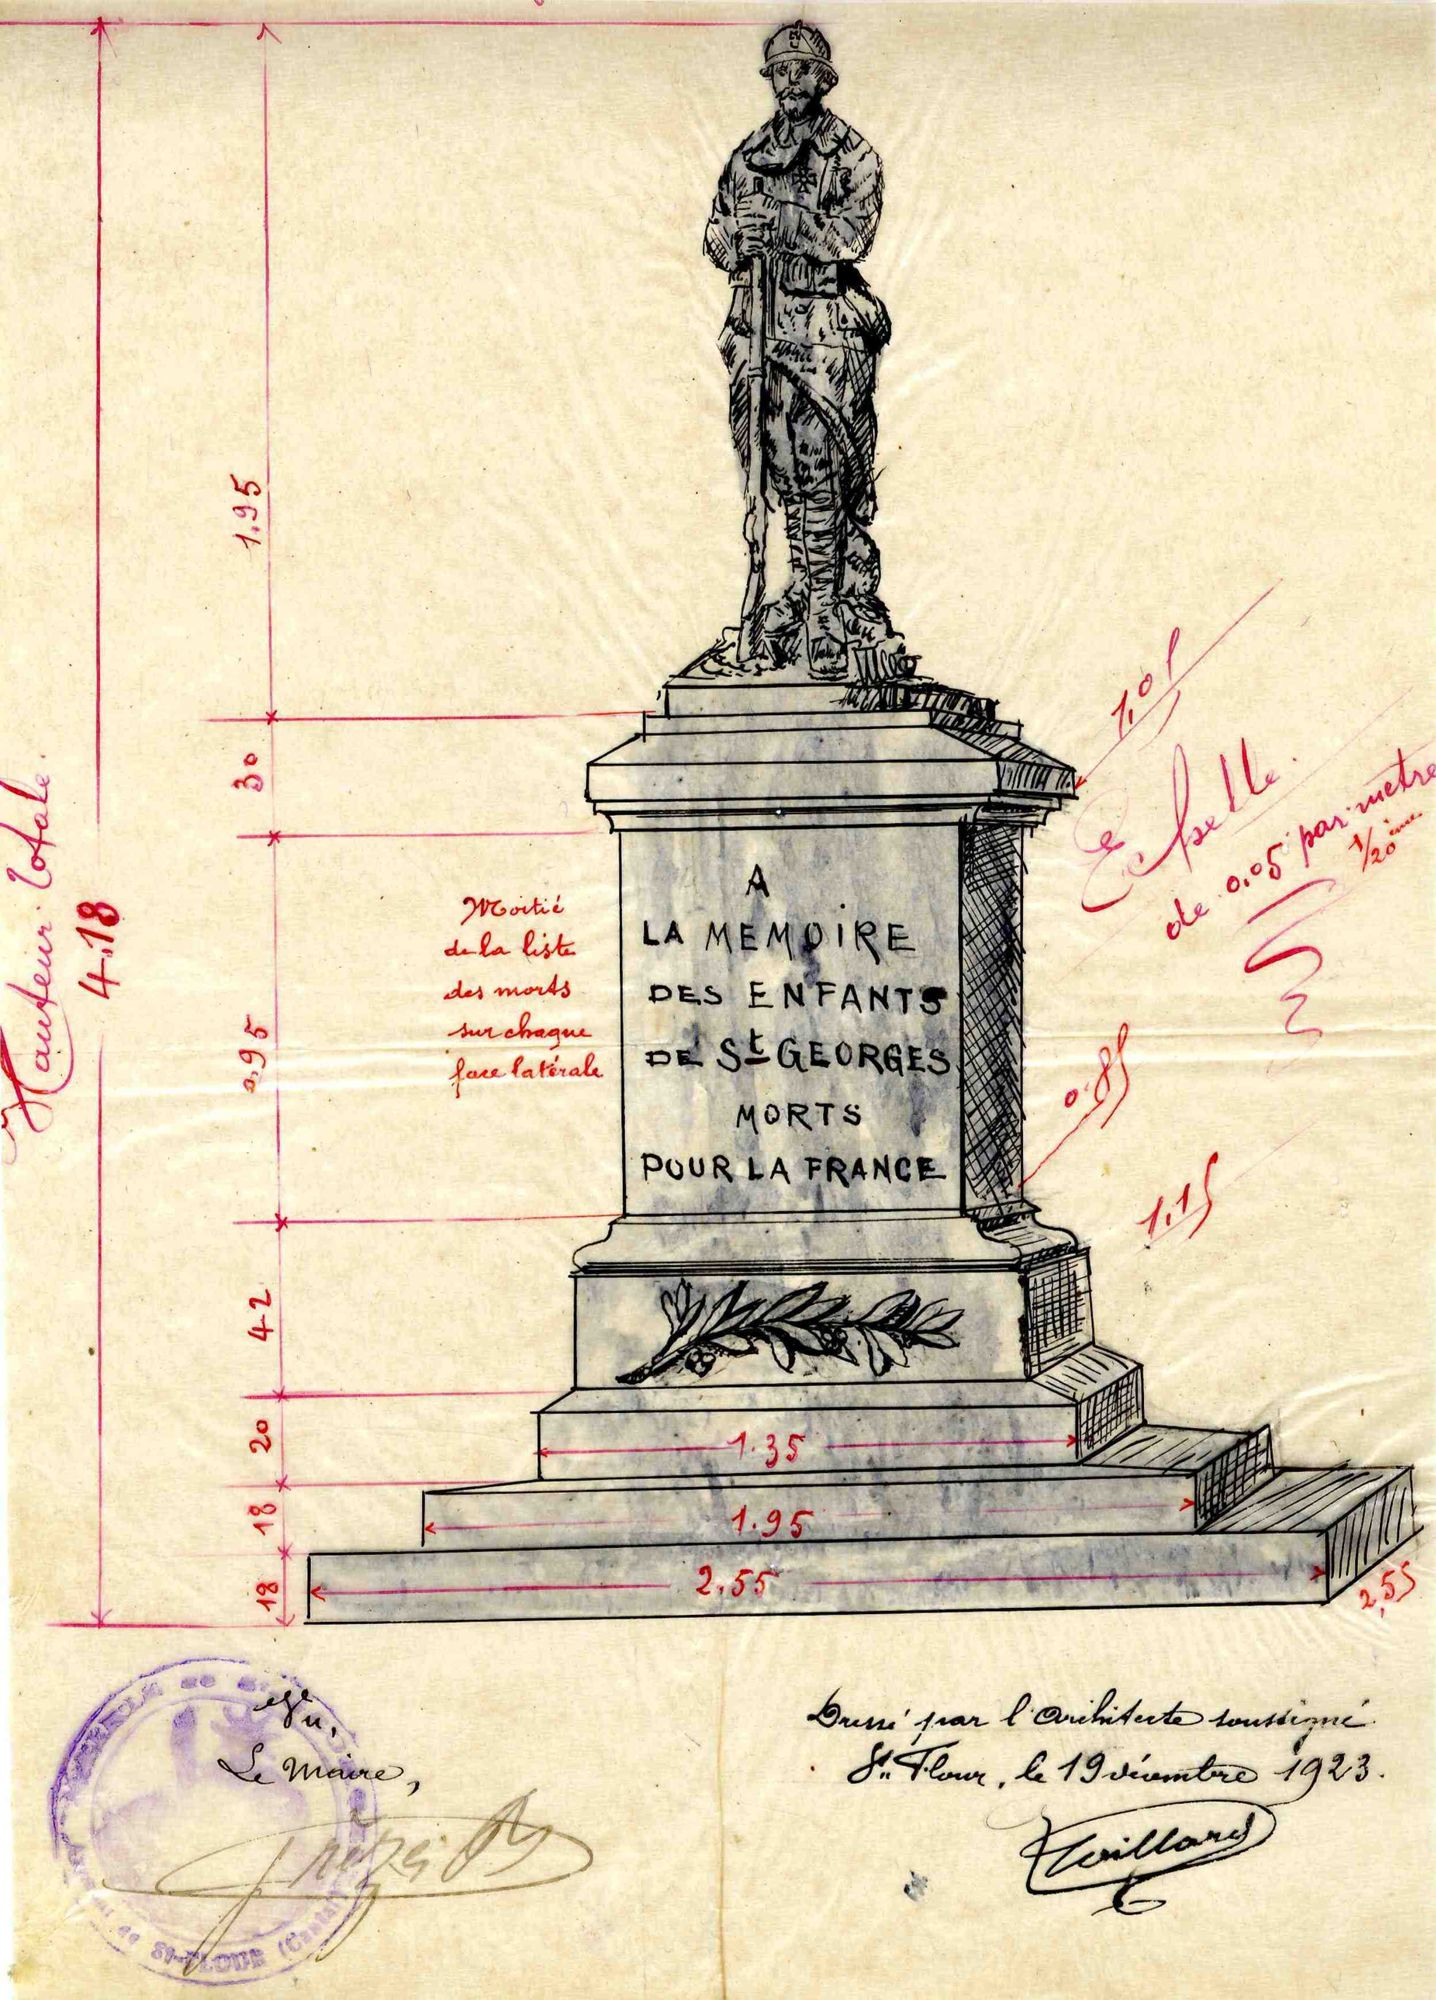 Hauteur totale.
4.18
1.95
30
0.95
42
20
18
18
Moitié
de la liste
des morts
sur chaque
face latérale
A
LA MEMOIRE
DES ENFANTS
DE St GEORGES
MORTS
POUR LA FRANCE
1,01
Echelle.
de 0.05 par mètre
1/20ème
0.85
1.15
1.35
1.95
2.55
2,55
Vu,
Le Maire,
de St-FLOUR (Cantal)
Dressé par l'architecte soussigné.
St. Flour, le 19 décembre 1923.